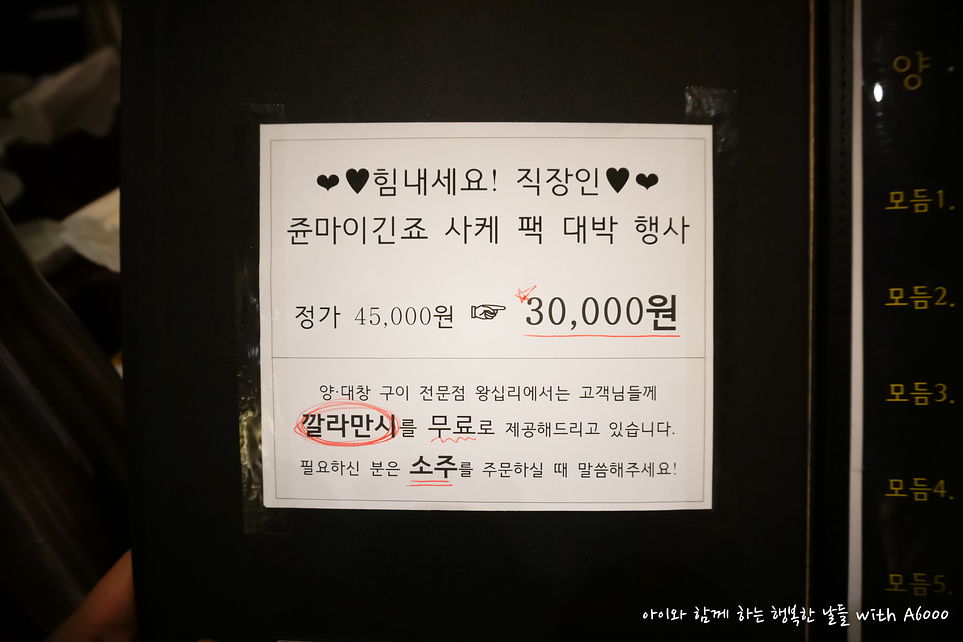 ❤♥힘내세요! 직장인♥❤
쥰마이긴죠 사케 팩 대박 행사
정가 45,000원 ☞ 30,000원
양·대창 구이 전문점 왕십리에서는 고객님들께
깔라만시를 무료로 제공해드리고 있습니다.
필요하신 분은 소주를 주문하실 때 말씀해주세요!
양
모듬1.
모듬2.
모듬3.
모듬4.
모듬5.
아이와 함께 하는 행복한 날들 with A6000